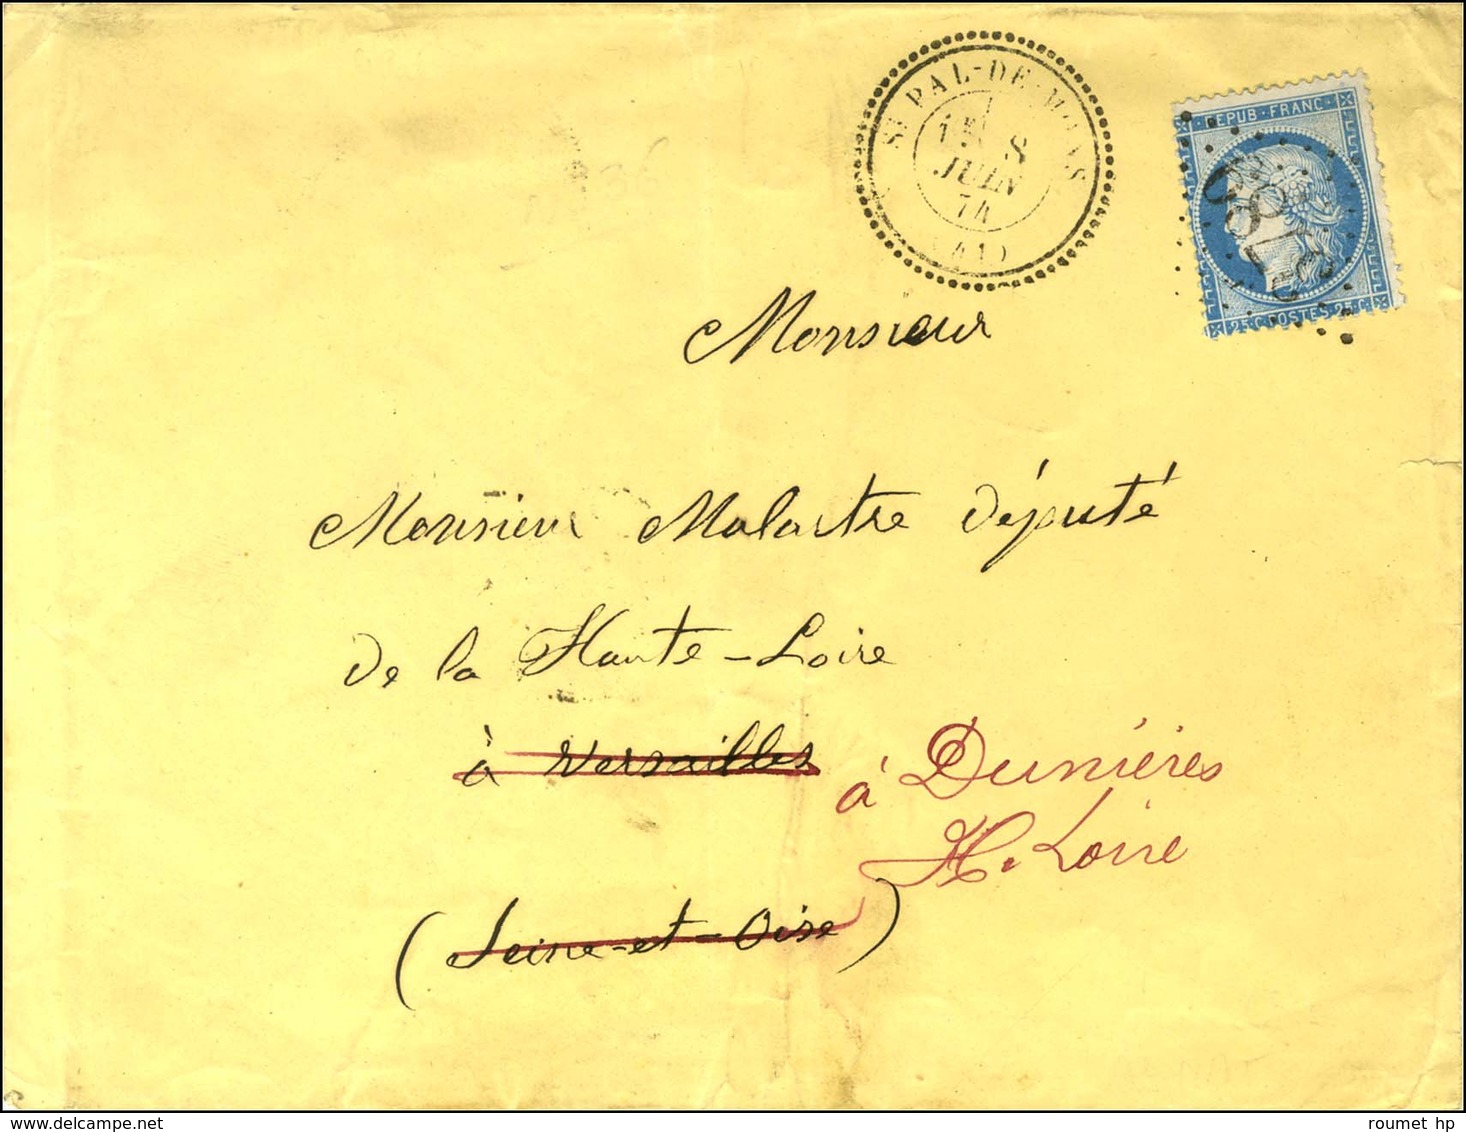 ST PAL-DE-MONS
1E
8
JUIN
74
(41)
REPUB·FRANC
25 C·POSTES·25 C
Monsieur
Monsieur Malartre député
de la Haute-Loire
à Versailles à Dunières
H. Loire
(Seine-et-Oise)
roumet hp